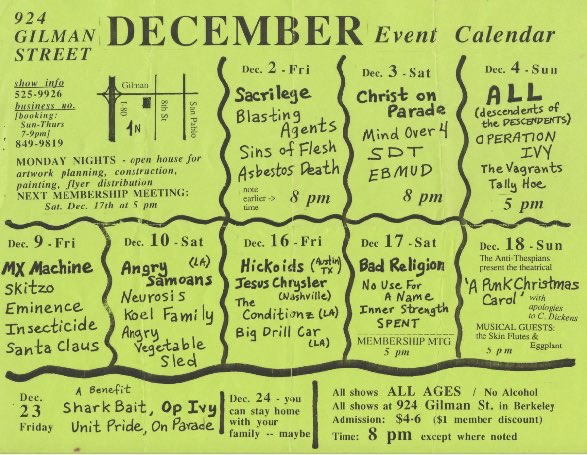 924
GILMAN
STREET
DECEMBER
Event Calendar
show info
525-9926
business no.
[booking:
Sun-Thurs
7-9pm]
849-9819
Gilman
I-80
8th St
San Pablo
N
MONDAY NIGHTS - open house for
artwork planning, construction,
painting, flyer distribution
NEXT MEMBERSHIP MEETING:
Sat. Dec. 17th at 5 pm
Dec. 2 - Fri
Sacrilege
Blasting
Agents
Sins of Flesh
Asbestos Death
note
earlier ->
time
8 pm
Dec. 3 - Sat
Christ on
Parade
Mind Over 4
SDT
EBMUD
8 pm
Dec. 4 - Sun
ALL
(descendents of
the DESCENDENTS)
OPERATION
IVY
The Vagrants
Tally Hoe
5 pm
Dec. 9 - Fri
MX Machine
Skitzo
Eminence
Insecticide
Santa Claus
Dec. 10 - Sat
Angry (LA)
Samoans
Neurosis
Koel Family
Angry
Vegetable
Sled
Dec. 16 - Fri
Hickoids (Austin,
TX)
Jesus Chrysler
(Nashville)
The
Conditionz (LA)
Big Drill Car
(LA)
Dec 17 - Sat
Bad Religion
No Use For
A Name
Inner Strength
SPENT
MEMBERSHIP MTG
5 pm
Dec. 18 - Sun
The Anti-Thespians
present the theatrical
'A Punk Christmas
Carol' with
apologies
to C. Dickens
MUSICAL GUESTS:
the Skin Flutes &
Eggplant
5 pm
Dec.
23
Friday
A Benefit
Shark Bait, Op Ivy
Unit Pride, On Parade
Dec. 24 - you
can stay home
with your
family -- maybe
All shows ALL AGES / No Alcohol
All shows at 924 Gilman St. in Berkeley
Admission: $4-6 ($1 member discount)
Time: 8 pm except where noted